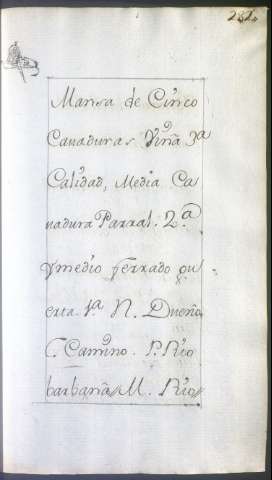 282.
Mansa de Cinco
Cavaduras Viña 3ª
Calidad, Media Ca
vadura Parral. 2.ª
Ymedio ferrado gu-
erta. 1ª N. Dueño
C. Camino. P. Rio
barbaña M. Rio